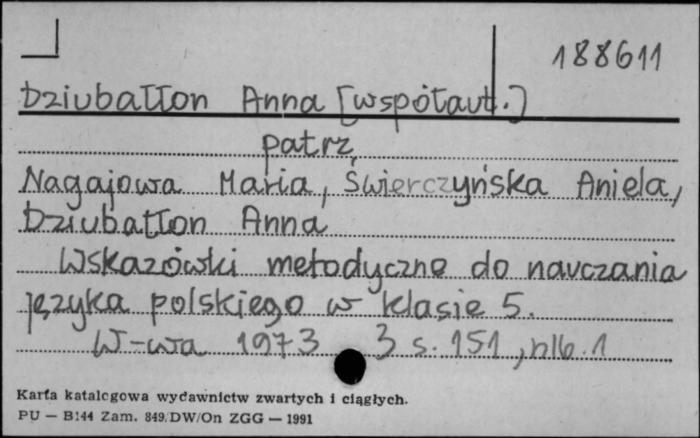 188611
Dziubałłon Anna [współaut.]
patrz
Nagajowa Maria, Świerczyńska Aniela,
Dziubałłon Anna
Wskazówki metodyczne do nauczania
języka polskiego w klasie 5.
W-wa 1973 3 s. 151, nlb. 1
Karta katalogowa wydawnictw zwartych i ciągłych.
PU — B144 Zam. 849/DW/On ZGG — 1991